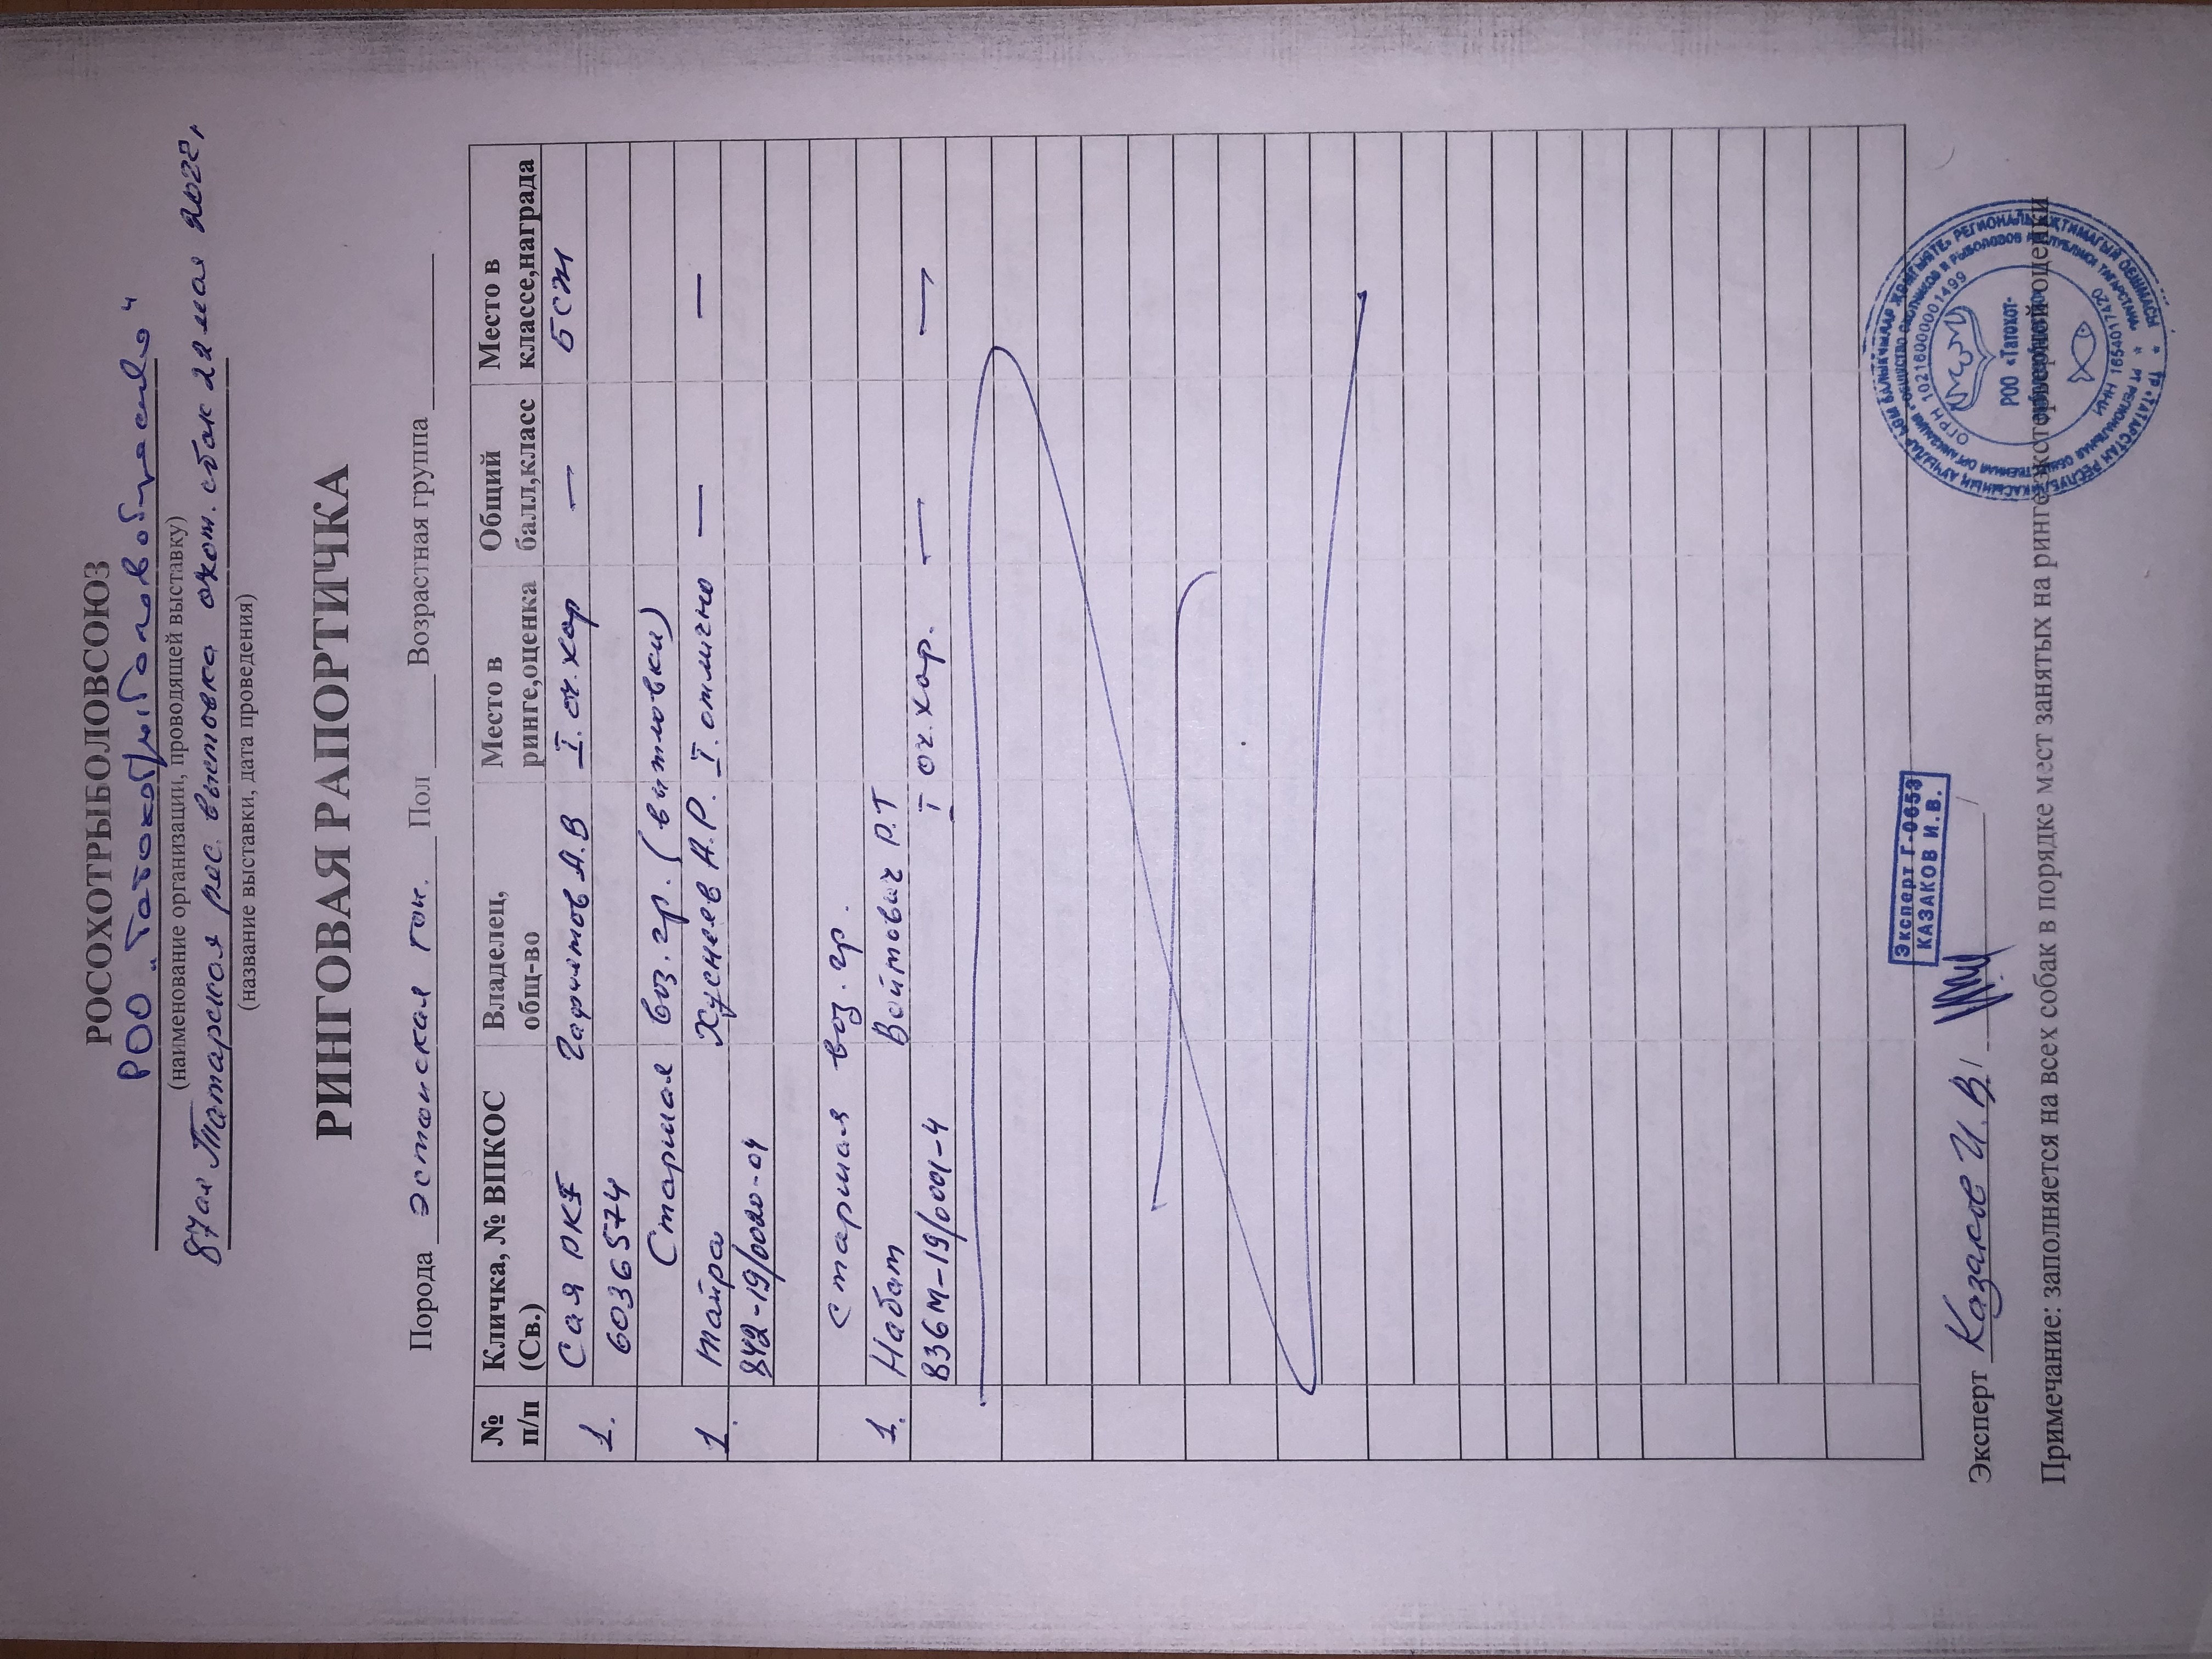 РОСОХОТРЫБОЛОВСОЮЗ
РОО "Татохотрыболовобщество"
(наименование организации, проводящей выставку)
87ая Татарская рес. выставка охот. собак 22 мая 2022г
(название выставки, дата проведения)
РИНГОВАЯ РАПОРТИЧКА
Порода Эстонская гон. Пол Возрастная группа
№ п/п Кличка, № ВПКОС (Св.) Владелец, общ-во Место в ринге,оценка Общий балл,класс Место в классе,награда
Сая РКF Гафиятов А.В I. оч. хор — БСЖ
1. 6036574
Старшая воз. гр. (выжловки)
1. Тайра Хуснеев А.Р. I. отлично — —
842-19/0020-04
Старшая воз. гр.
1. Набат Войтович Р.Т
836М-19/0001-4 I оч. хор. — —
Эксперт Г-0653
КАЗАКОВ И.В.
Эксперт Казаков И.В.
Примечание: заполняется на всех собак в порядке мест занятых на ринге экстерьерной оценки
ОГРН 1021600001499
РОО «Татохот-
рыболовобщество»
ИНН 1654017420